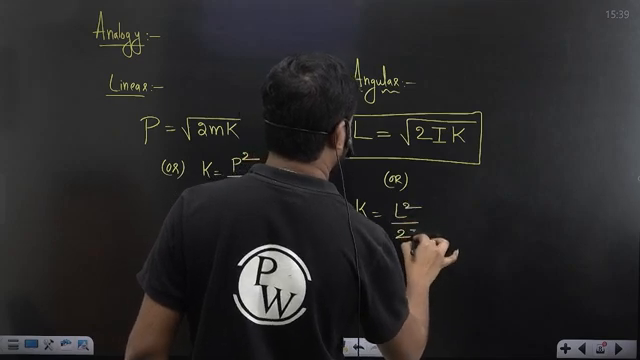 15:39
Analogy :-
Linear :-
P = √2mK
(OR) K = P²
Angular :-
L = √2IK
(OR)
K = L²/2I
PW